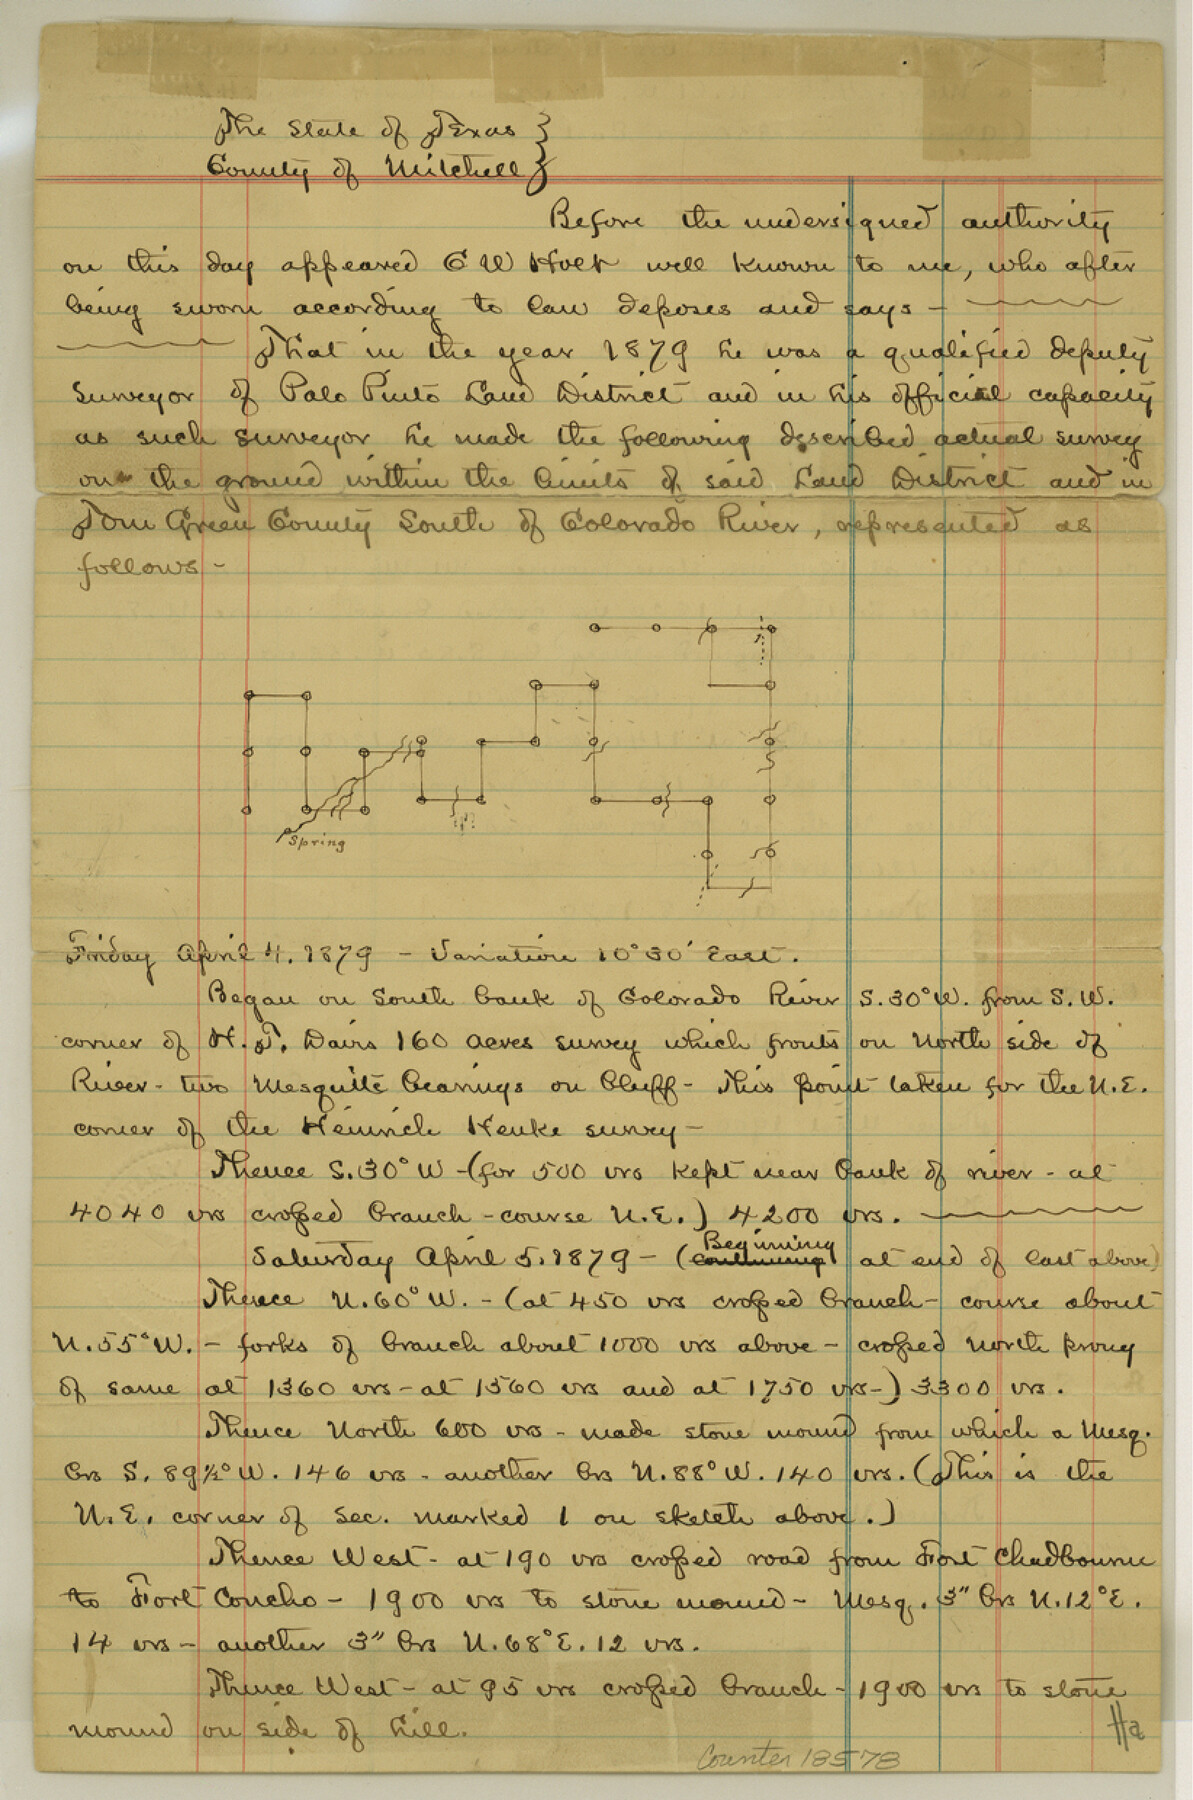 The State of Texas }
County of Mitchell }
Before the undersigned authority
on this day appeared C W Holt well known to me, who after
being sworn according to law deposes and says -
That in the year 1879 he was a qualified deputy
Surveyor of Palo Pinto Land District and in his official capacity
as such surveyor he made the following described actual survey
on the ground within the limits of said Land District and in
Tom Green County South of Colorado River, represented as
follows -
1
Spring
Friday April 4, 1879 - Variation 10°30' East.
Began on South bank of Colorado River S.30°W. from S.W.
corner of H.T. Davis 160 acres survey which fronts on North side of
River - two Mesquite bearings on bluff - This point taken for the N.E.
corner of the Heinrich Henke survey -
Thence S.30°W - (for 500 vrs kept near bank of river - at
4040 vrs crossed branch - course N.E.) 4200 vrs.
Saturday April 5. 1879 - (Beginning at end of last above)
Thence N.60°W. - (at 450 vrs crossed branch - course about
N.55°W. - forks of branch about 1000 vrs above - crossed north prong
of same at 1360 vrs - at 1560 vrs and at 1750 vrs -) 3300 vrs.
Thence North 600 vrs - made stone mound from which a Mesq.
brs S. 89½°W. 146 vrs - another brs N.88°W. 140 vrs. (This is the
N.E. corner of Sec. marked 1 on sketch above.)
Thence West - at 190 vrs crossed road from Fort Chadbourne
to Fort Concho - 1900 vrs to stone mound - Mesq. 3" brs N.12°E.
14 vrs - another 3" brs N.68°E. 12 vrs.
Thence West - at 95 vrs crossed branch - 1900 vrs to stone
mound on side of hill.
Counter 18578